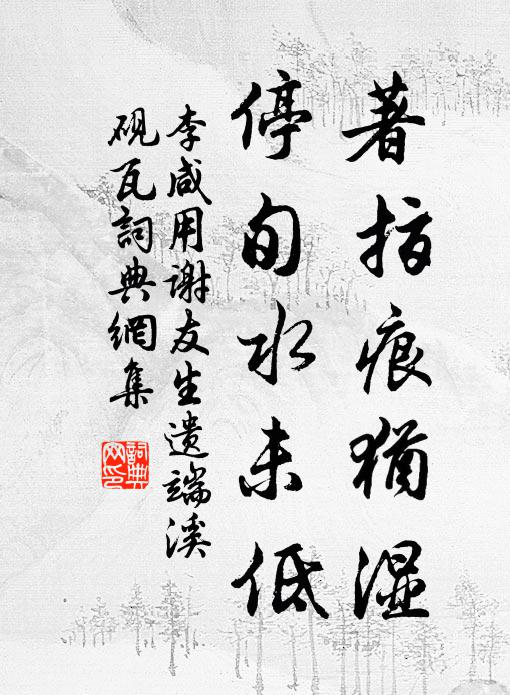 著指痕猶湿
停旬水未低
李咸用谢友生遗端溪
砚瓦詞典網集
詞典
网印